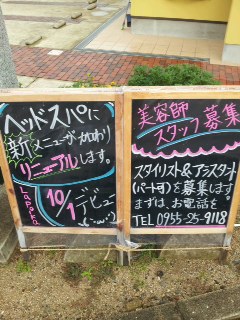 ヘッドスパに
新メニューがかわり
リニューアルします。
10/1デビュー
Lapora
美容師
スタッフ募集
スタイリスト&アシスタント
(パート可)を募集します。
まずは、お電話を
TEL 0955-25-9118